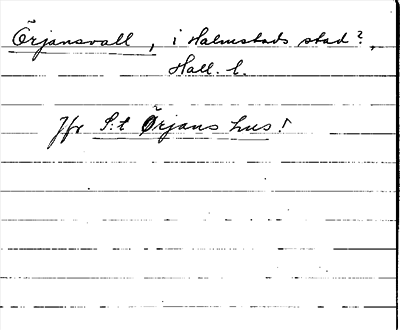 Örjansvall, i Halmstads stad?,
Hall. l.
Jfr S:t Örjans hus!